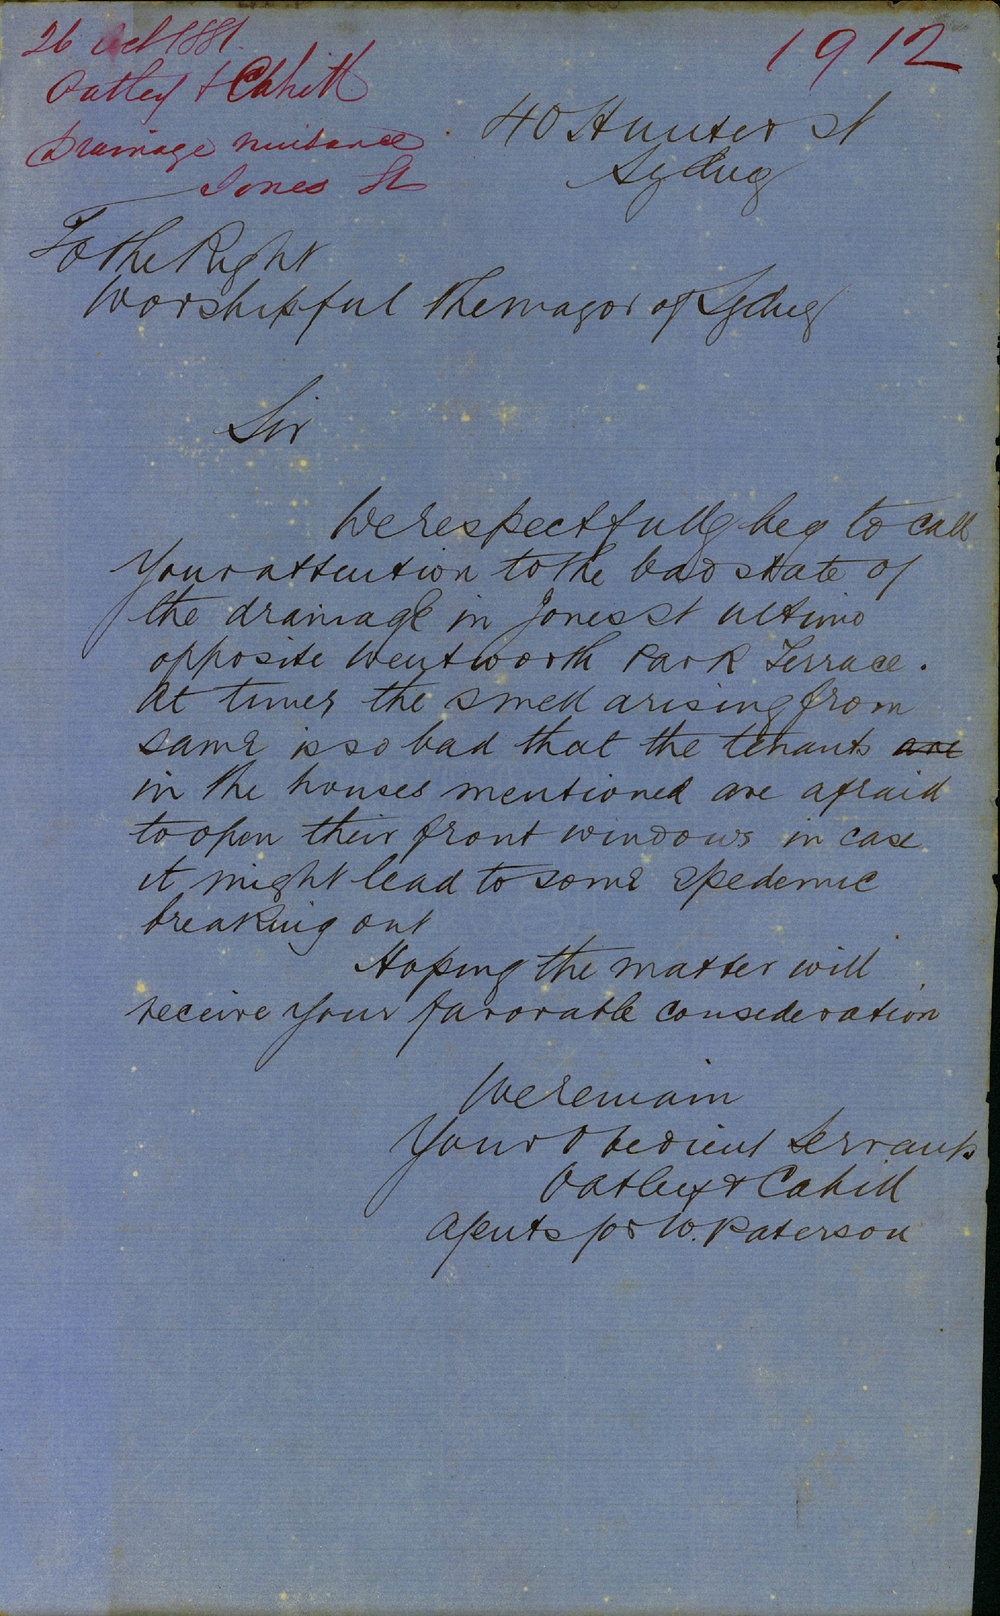 26 Oct 1881.
Oatley & Cahill
Drainage nuisance
Jones St
1912
40 Hunter St
Sydney
To the Right
Worshipful the mayor of Sydney
Sir
We respectfully beg to call
Your attention to the bad state of
the drainage in Jones St Ultimo
opposite Wentworth Park Terrace.
At times the smell arising from
same is so bad that the tenants are
in the houses mentioned are afraid
to open their front windows in case
it might lead to some epedemic
breaking out
Hoping the matter will
receive your favorable consideration
We remain
Your Obedient Servants
Oatley & Cahill
Agents for W. Paterson